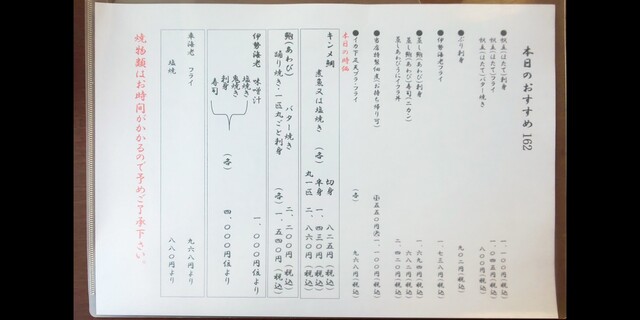 本日のおすすめ 162
●帆立(ほたて)刺身 一、一〇〇円(税込)
帆立(ほたて)フライ 一、〇四五円(税込)
帆立(ほたて)バター焼き 八〇〇円(税込)
●ぶり刺身 九〇二円(税込)
●伊勢海老フライ 一、七三八円(税込)
●蒸し鮑(あわび)刺身 一、六九四円(税込)
蒸し鮑(あわび)寿司(二カン) 六八二円(税込)
蒸しあわびうにイクラ丼 二、四二〇円(税込)
●当店特製佃煮(お持ち帰り可) 五五〇円 一、一〇〇円(税込)
●イカ下足天プラ・フライ (各) 九六八円(税込)
本日の時価
切身 八二五円(税込)
キンメ鯛 煮魚又は塩焼き (各) 半身 一、四三〇円(税込)
丸一匹 二、八六〇円(税込)
鮑(あわび) バター焼き 二、二〇〇円(税込)
踊り焼き・一匹丸ごと刺身 (各) 一、五四〇円(税込)
伊勢海老 味噌汁 一、〇〇〇円位より
塩焼き
鬼焼き
刺身 (各) 四、〇〇〇円位より
寿司
車海老 フライ 九六八円より
塩焼 八八〇円より
焼物類はお時間がかかるので予めご了承下さい。